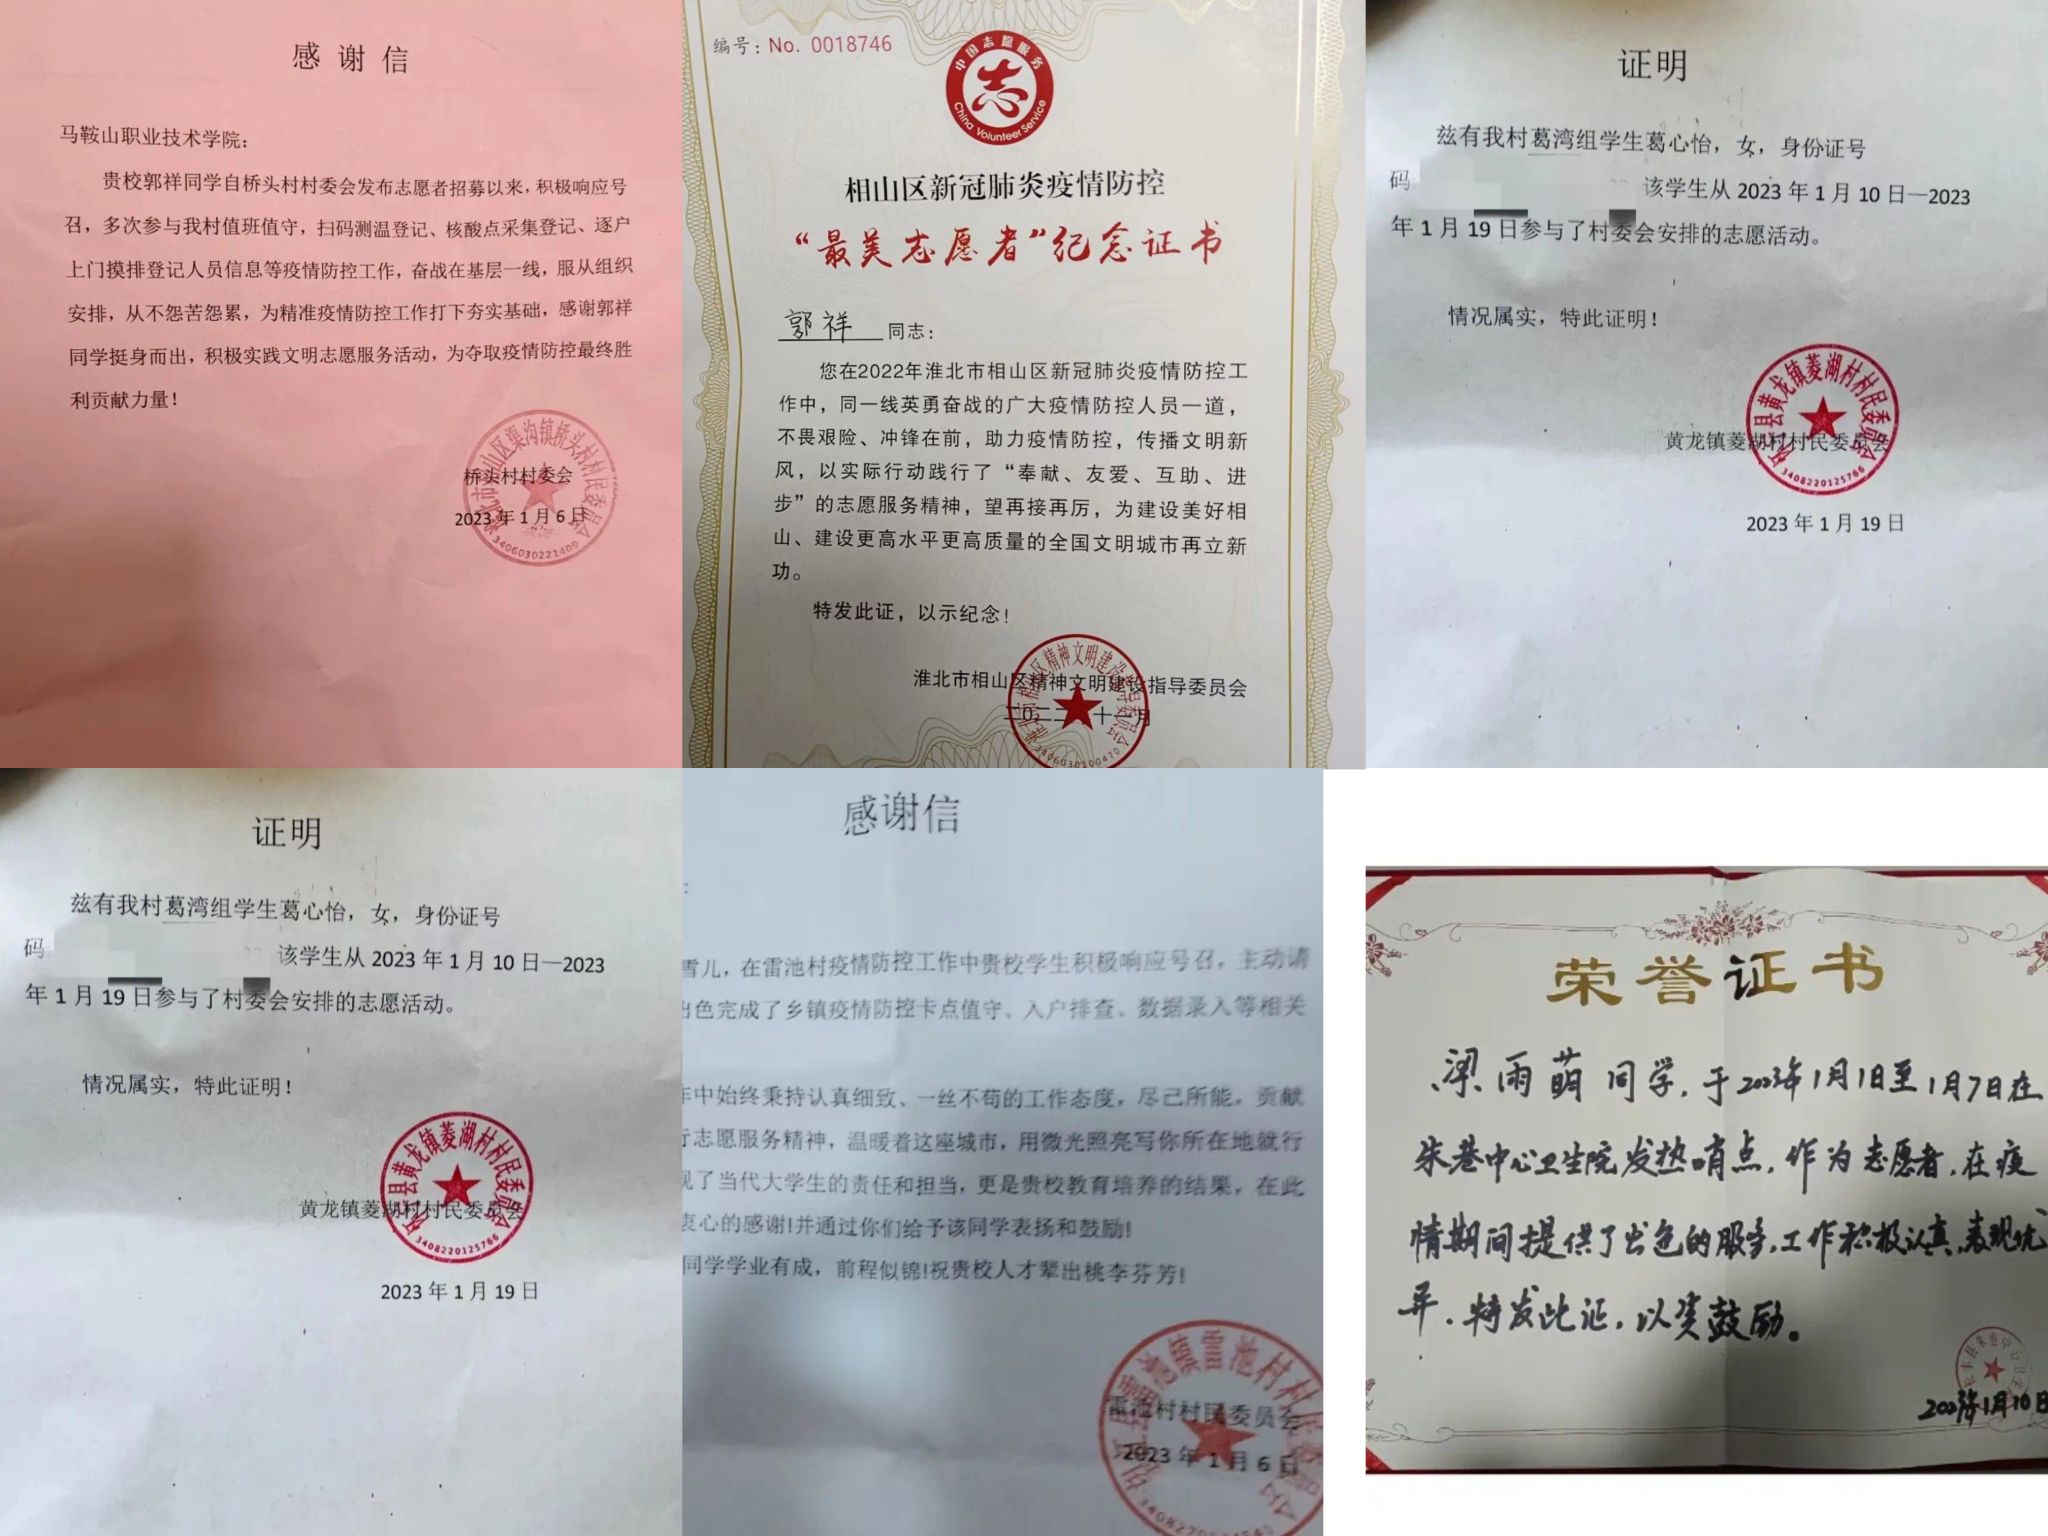 感谢信
马鞍山职业技术学院：
贵校郭祥同学自桥头村村委会发布志愿者招募以来，积极响应号
召，多次参与我村值班值守，扫码测温登记、核酸点采集登记、逐户
上门摸排登记人员信息等疫情防控工作，奋战在基层一线，服从组织
安排，从不怨苦怨累，为精准疫情防控工作打下夯实基础，感谢郭祥
同学挺身而出，积极实践文明志愿服务活动，为夺取疫情防控最终胜
利贡献力量！
桥头村村委会
2023年1月6日
3406030221409
编号：No. 0018746
中国志愿服务
志
China Volunteer Service
相山区新冠肺炎疫情防控
“最美志愿者”纪念证书
郭祥 同志：
您在2022年淮北市相山区新冠肺炎疫情防控工
作中，同一线英勇奋战的广大疫情防控人员一道，
不畏艰险、冲锋在前，助力疫情防控，传播文明新
风，以实际行动践行了“奉献、友爱、互助、进
步”的志愿服务精神，望再接再厉，为建设美好相
山、建设更高水平更高质量的全国文明城市再立新
功。
特发此证，以示纪念！
淮北市相山区精神文明建设指导委员会
二〇二二年十一月
3406030100470
证明
兹有我村葛湾组学生葛心怡，女，身份证号
码 该学生从 2023 年 1 月 10 日—2023
年 1 月 19 日参与了村委会安排的志愿活动。
情况属实，特此证明！
黄龙镇菱湖村村民委员会
3408220125766
2023 年 1 月 19 日
证明
兹有我村葛湾组学生葛心怡，女，身份证号
码 该学生从 2023 年 1 月 10 日—2023
年 1 月 19 日参与了村委会安排的志愿活动。
情况属实，特此证明！
黄龙镇菱湖村村民委员会
3408220125766
2023 年 1 月 19 日
感谢信
：
雪儿，在雷池村疫情防控工作中贵校学生积极响应号召，主动请
出色完成了乡镇疫情防控卡点值守、入户排查、数据录入等相关
中始终秉持认真细致、一丝不苟的工作态度，尽己所能，贡献
志愿服务精神，温暖着这座城市，用微光照亮写你所在地就行
现了当代大学生的责任和担当，更是贵校教育培养的结果，在此
衷心的感谢！并通过你们给予该同学表扬和鼓励！
同学学业有成，前程似锦！祝贵校人才辈出桃李芬芳！
雷池村村民委员会
2023 年 1 月 6 日
荣誉证书
梁雨萌同学，于2023年1月1日至1月7日在
朱巷中心卫生院发热哨点，作为志愿者，在疫
情期间提供了出色的服务，工作积极认真，表现优
异，特发此证，以资鼓励。
2023年1月10日